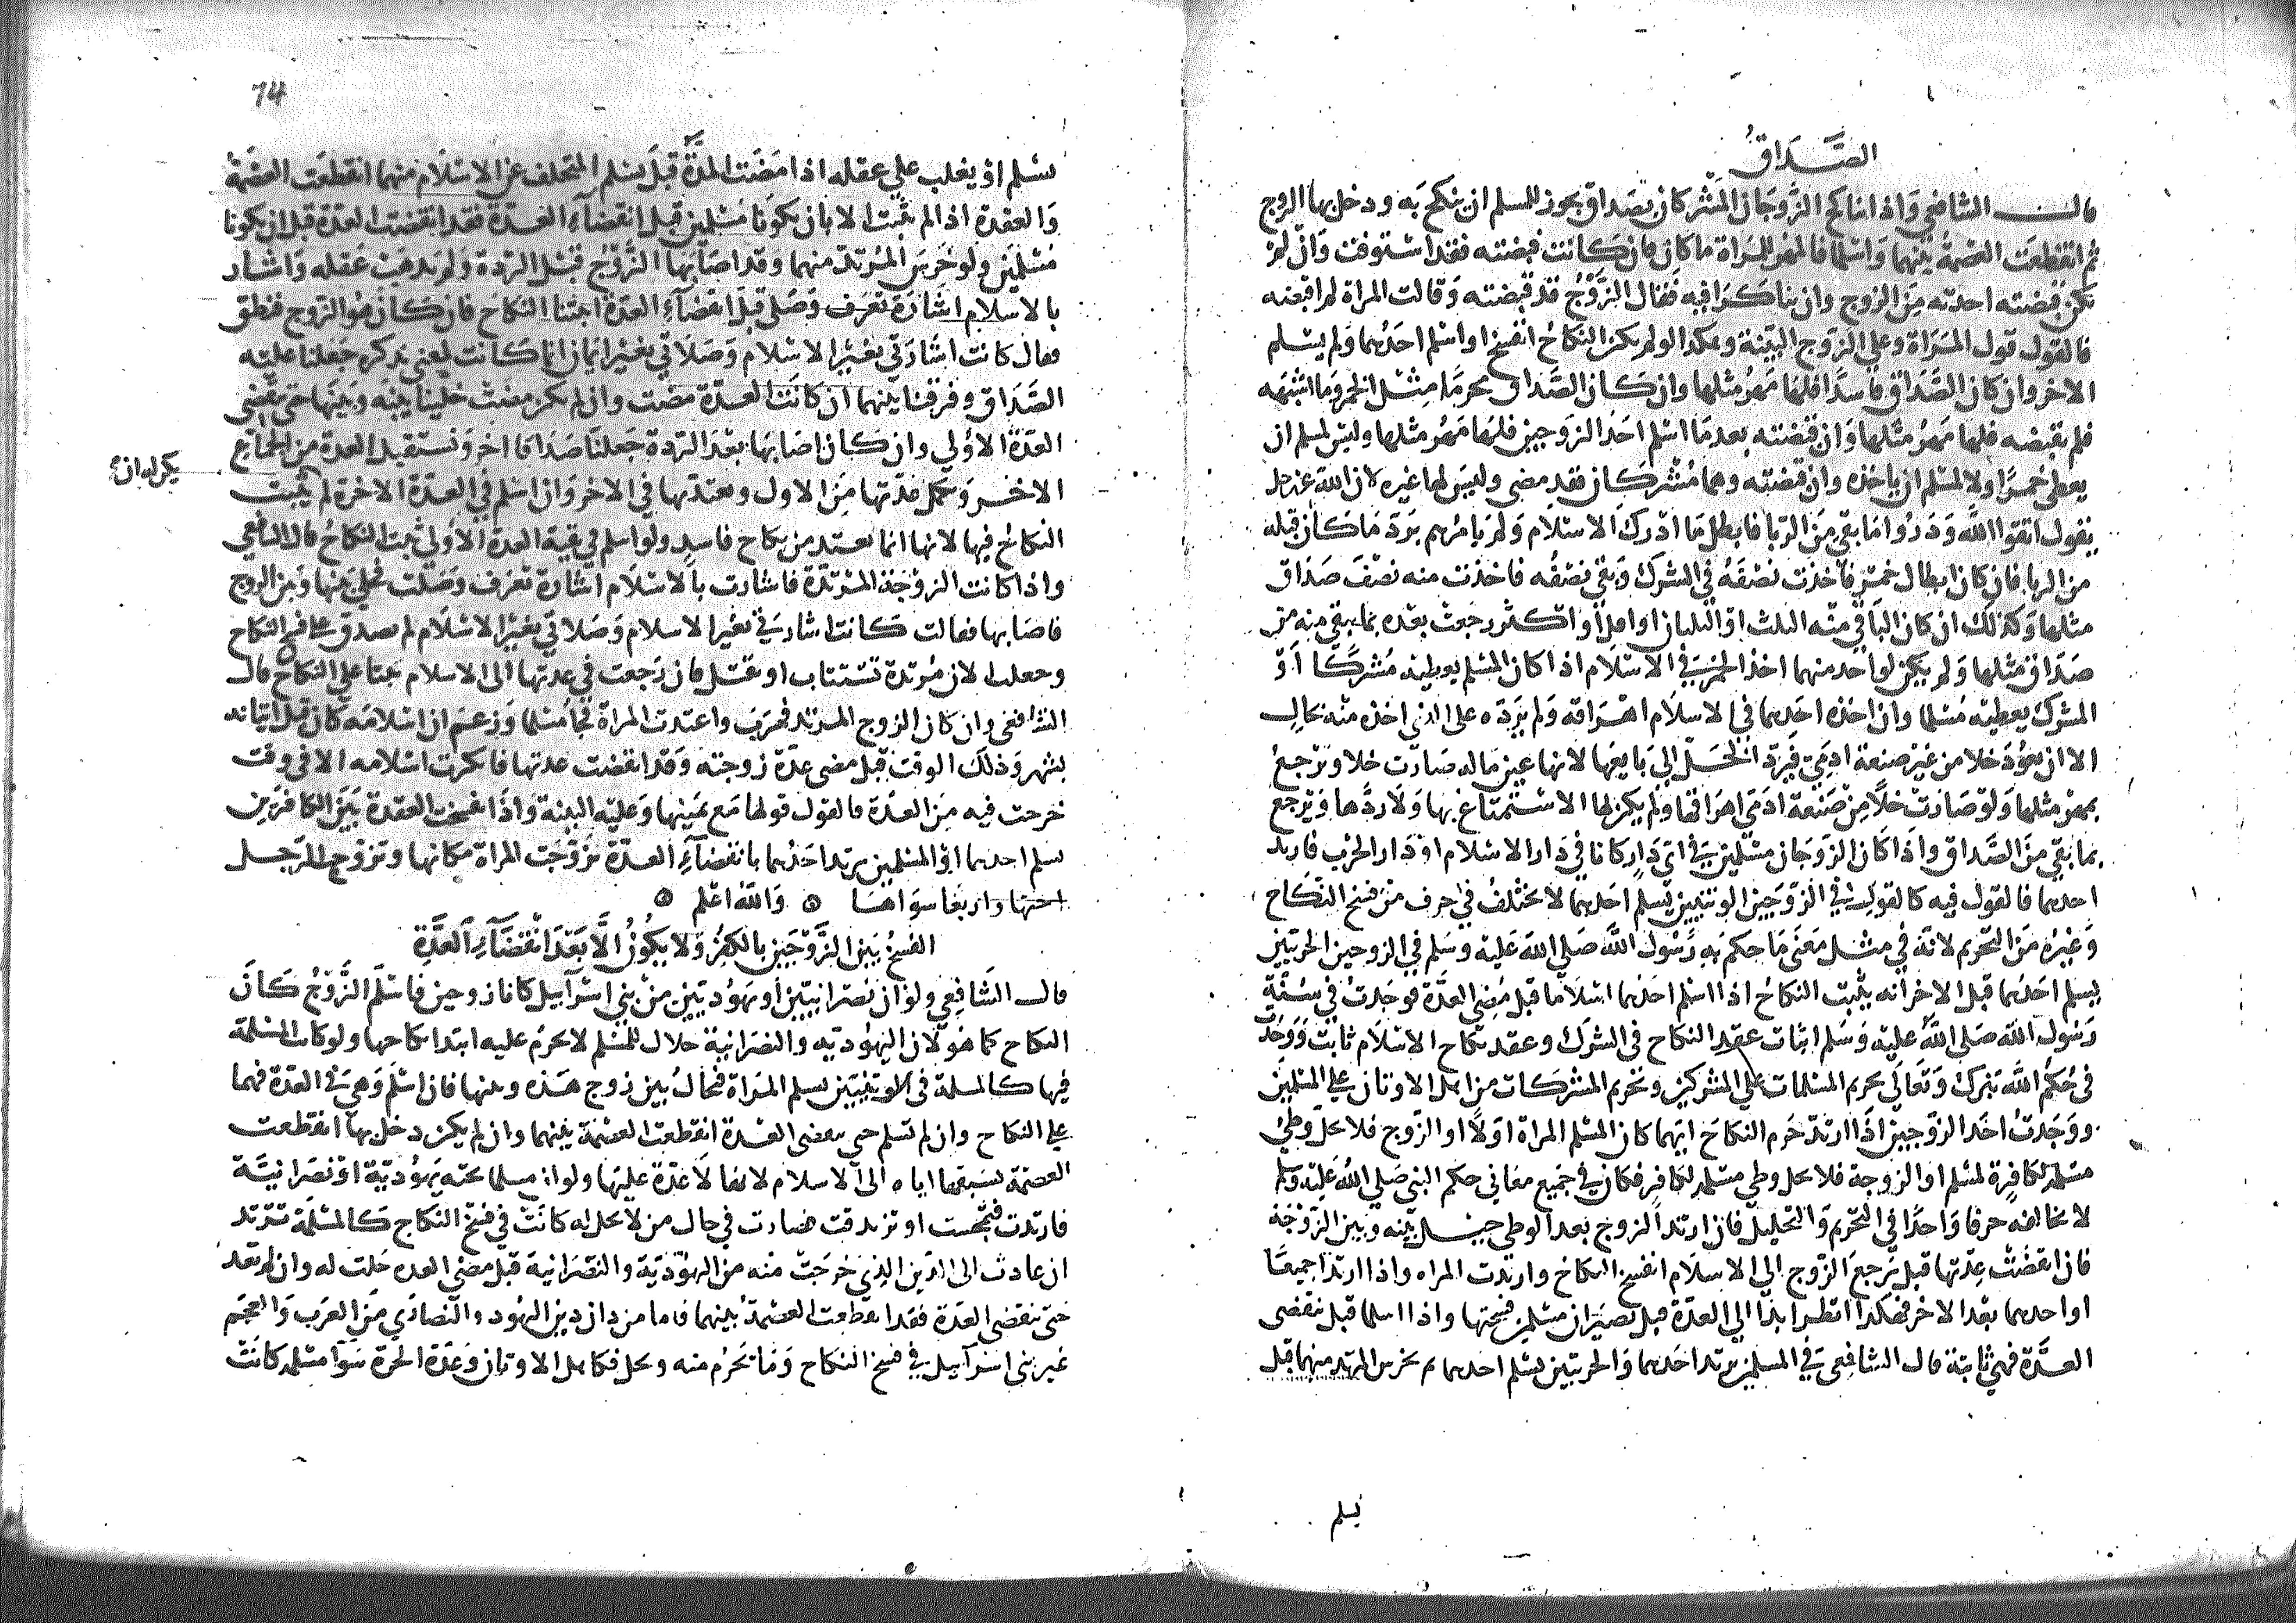 الصَّدَاقُ
قال الشافعي وَاذا تناكح الزَّوجَان المشْركان بصَداق يجوز للمسلم ان ينكح به ودخل بها الزوج
ثم انقطعَت العصْمة بينهما وَاسْلما فالمهر للمرَاة ما كان فان كانت قبضته فقد استوفت وَان لم
تكن قبضته اخذته مِن الزوج وان تناكرَا فيه فقال الزَّوْجُ قد قبضته وَقالت المراة لم اقبضه
فالقول قول المرَاة وعلي الزوج البيّنة وهكذا لو لم يكن النكاحُ انفسخ او اسْلم احَدُهما وَلم يسْلم
الاخر وان كان الصَّدَاق فاسدًا فلهَا مَهْر مثلها وان كان الصَّداق محرمًا مِثْل الخمر وَما اشْبَهه
فلم يقبضه فلها مَهْر مثلها وَان قبَضته بعد مَا اسْلم احَد الزوجين فلهَا مَهْر مثلها وليسَ لمسلم ان
يعطى خمرًا ولا لمسْلم ان ياخذه وان قبَضته وهما مُشْركان فقد مضى وليسَ لها غيره لان اللهَ عزَّ وجل
يقول اتقوا اللَّهَ وَذرُوا مَا بقي مِنَ الرّبا فابطل مَا ادْرك الاسْلام وَلم يامُرهم برَدّ مَا كان قبله
من الربا فان كان ارطال خمْر فاخذت نصْفَهُ في الشرك وَبقي نصْفُه فاخذت منه نصْفَ صَداق
مثلها وَكذلك ان كان البَاقي منه الثلث اوْ الثلثان او اقل او اكثر رجَعتْ بعدّه بما يبقي منه من
صَدَاق مثلها وَلم يكن لوَاحد منهما اخذ الخمْر في الاسْلام اذا كان المسْلم يعطيه مُشْركًا اوْ
المشرك يعطيه مُسْلما وان اخذه احَدهما في الاسلام اهْرَاقه وَلم يَردّه على الذي اخذه منْه بحَال
الا ان يعُوْدَ خلا من غيْر صنعة ادَمِيّ فيردّ الخَل إلى بَايعَها لانها عين ماله صَارت خلا وَترْجعُ
بمهر مثلها وَلوْ صَارَتْ خلًّا مِنْ صَنْعة ادَمي اهرَاقها وَلم يكن لها الاسْتمتاع بها وَلا رَدُّها وَيَرجع
بما بقي مِنَ الصَّدَاق وَاذَا كَان الزوجَان مسْلمَيْن في ايّ دَارٍ كانا في دَار الاسْلام اوْ دَار الحرْب فارتد
احدهما فالقول فيه كالقول في الزّوجَين الوثنيين يُسلم احَدهما لا يختلفُ في حرف من فسْخ النِّكَاح
وَغيْره مِنَ التحريم لانّه في مثل معْنَى مَا حكم به رَسُول اللهَ صَلى اللهَ عَليْه وسَلم في الزوجين الحربيين
يسلم احَدُهما قبل الاخر انه يثبت النكاحُ اذا اسْلم احَدُهما اسْلامًا قبل مُضي العدَّة فوجَدتُ في سُنَّة
رَسُول الله صَلى اللهُ عَليْه وَسَلم اثبات عقدِ النكاح في الشرك وعقد نكاح الاسْلام ثابت وَوَجدْتُ
في حُكم الله تبَرك وَتعَالي تحريم المسْلمات علي المشركين وتحريم المشركات من اهل الاوثان على المسْلمين
ووَجَدتُ احَد الزوّجين اذَا ارتدّ حَرم النكاحَ ايّهما كان المسْلم المراة اوَلًا او الزوج فلا يحلّ وَطئ
مسْلم لكافرة لمسْلم او الزوجة فلا يحل وطي مسْلمة لكافر فكان في جَميع معَاني حكم النبي صَلى اللهُ عَليْه وَسَلم
لا يخالفه حرفا وَاحدًا في التحرّيم وَالتحليل فان ارتد الزوج بعد الوطي حيل بيْنه وَبين الزوْجَة
فان انقضَتْ عِدّتها قبل يَرجعَ الزَّوج الى الاسلام انفسخ النكاح وان ارتدت المراه واذا ارتدا جميعًا
او احدهما بعْد الاخر فهكذا انظر ابدًا الي العدّة قبل يَصيْران مسْلمين فسختها واذا اسلما قبل تنقضى
العدَّة فهي ثابتة قال الشافعي في المسلمين يرتد احَدهما وَالحربيين يسْلم احدهما ثم يخرس المرتد منهما قبل
يسلم
74
يسْلم اوْ يغلب علي عقله اذا مَضَت المدَّةُ قبلَ يسْلم المتخلف عن الاسْلام منهما انقطعَت العصْمةُ
وَالعقدة اذا لم تثبت الا بان يكونَا مُسْلمين قبل انقضآءِ العدّة فقد انقضت العدّة قبل ان يكونا
مُسْلمَيْن ولو خَرسَ المُرْتدّ منهما وَقد اصَابَها الزَّوْجُ قبْل الردة وَلم يذهَبْ عَقله وَاشار
بالاسلام اشَارَة تعْرَف وصَلى قبل انقضآءِ العدّة اثبتنا النكاح فان كَانَ هُوَ الزوج فنطق
فقال كانت اشارَتي بغيْر الاسلام وَصَلاتي بغيْر ايمان انما كانت لمعنى يذكره جَعلنا عليه
الصَّدَاق وفرقنا بيْنهما ان كانتَ العدّة مضَت وان لم تكن مضتْ حلنا بيْنه وَبيْنها حتى تنقضي
العدّةُ الاوْلي وان كان اصَابَها بعْدَ الردة جَعلنَا صَدَاقا اخر وَتسْتقبل العدة من الجماع
الاخر وَتكمل عدّتها مِنَ الاول وتعتدّ بها في الاخر وَان اسْلم في العدّة الاخرة لم يثبت
يكن له ان
النكاحُ فيها لانها انما تعتد من نكاح فاسد ولو اسلم في بقيّة العدة الاوْلى ثبت النكاحُ قال الشافعي
واذا كانت الزوْجَة المرْتدّة فاشارت بالاسْلام اشارة تعْرَف وَصَلت فخلي بَينها وَبين الزوج
فاصَابها فقالت كانت اشارَتي بغيْر الاسلام وَصَلاتي بغيْر الاسْلام لم تصدق على فسخ النكاح
وجعلت الان مُرْتدّة تسْتتاب او تقتل فان رَجعت في عدتها الى الاسلام ثبتا علي النكاح قال
الشافعي وان كان الزوج المرتد فهرَبَ واعتدت المراة فجآ مُسْلما وَزعَم ان اسْلامه كان قبل اتيانه
بشهر وَذلك الوقت قبل مضى عدّة زوجته وَقد انقضت عدتها فانكرت اسْلامه الا في وقت
خرجت فيه مِنَ العدّة فالقول قولها مَع يَمينها وَعليْه البيّنة وَاذَا انفسخت العقدة بَيْنَ الكافرَيْن
يسلم احدهما اوْ المسلمين يرتد احَدُهما بانقضآءِ العدّة تزوجَت المراة مكانها وتزوج الرَّجل
اختها واربعًا سوَاهَا ۞ وَاللَّهُ اعْلم ۞
الفسْخُ بَيْن الزَّوْجَيْن بالكفْر وَلا يكُونُ الَّا بَعْدَ انْقضَآءِ العدَّةِ
قال الشَّافعِي ولوْ ان نصْرانيّين أو يهُوديّين منْ بَني اسْرآييل كانا زوجين فاسْلم الزَّوْجُ كانَ
النكاح كما هُوَ لان اليَهُوْديّه والنصْرَانية حَلال للمُسْلم لا يحرم عليه ابتدا نكاحها ولو كانت المسْلمة
فيها كالمسلمة في الوثنيين تسلم المرَاة فيحَالُ بين زوج هَذه ومنها فان اسْلَم وَهي في العدّة فهما
على النكاح وان لم تسلم حتي تنقضي العدّة انقطعت العصْمة بينهما وان لم يكن دخل بها انقطعت
العصْمة بسَبقها اياه إلى الاسلام لانها لا عدّة عليها ولو ان مسلما تحته يَهُوْديّة اوْ نصرَانيّة
فارتدت فتمجّست او تزندقت فصارت في حال من لا تحل له كانَتْ في فسخْ النكاح كالمسْلمة ترْتد
ان عادتْ الى الدّين الذي خَرَجتْ منه من اليَهُوْديّة والنصْرَانية قبل مضي العده حَلت له وان لم تعد
حتى تنقضي العدّة فقد انقطعت العصْمَةُ بينهما فاما من دان دين اليهُود والنصَارَى مِن العرَب وَالعجم
غير بني اسْرآييل في فسخ النكاح وَمَا يَحرُم منه ويحل فكاهل الاوثان وَعدّة الحرة سَوَآ مسْلمة كانَتْ